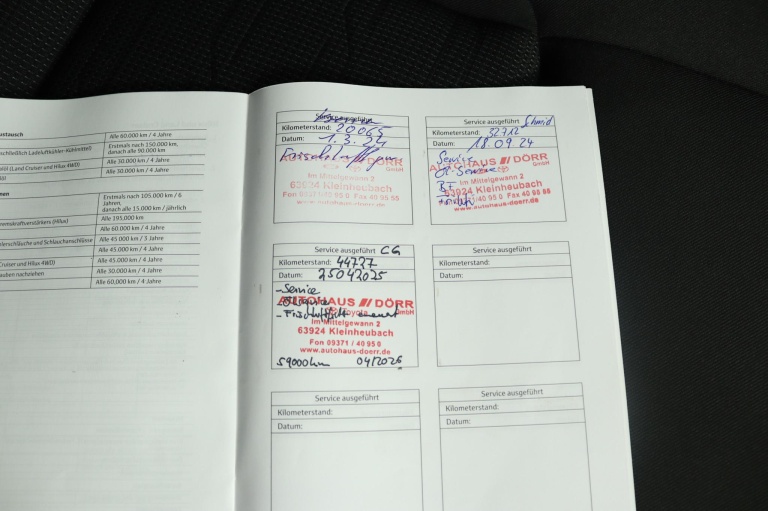 ustausch
Alle 60.000 km / 4 Jahre
schließlich Ladeluftkühler-Kühlmittel)
Erstmals nach 150.000 km,
danach alle 90.000 km
(Land Cruiser und Hilux 4WD)
Alle 30.000 km / 4 Jahre
Alle 30.000 km / 4 Jahre
nen
Erstmals nach 105.000 km / 6
Jahren,
danach alle 15.000 km / jährlich
emskraftverstärkers (Hilux)
Alle 195.000 km
Alle 60.000 km / 4 Jahre
hlerschläuche und Schlauchanschlüsse
Alle 45.000 km / 3 Jahre
Alle 45.000 km / 4 Jahre
Cruiser und Hilux 4WD)
Alle 45.000 km / 4 Jahre
auben nachziehen
Alle 30.000 km / 4 Jahre
Alle 60.000 km / 4 Jahre
Kilometerstand: 20065
Datum: 1.3.24
AUTOHAUS DÖRR
GmbH
Im Mittelgewann 2
63924 Kleinheubach
Fon 09371/40 95 0 Fax 40 95 55
www.autohaus-doerr.de
Service ausgeführt Schmid
Kilometerstand: 32712
Datum: 18.09.24
Service
AUTOHAUS DÖRR
Öl-Service
GmbH
Im Mittelgewann 2
63924 Kleinheubach
40 95 0 Fax 40 95 55
www.autohaus-doerr.de
Service ausgeführt CG
Kilometerstand: 44727
Datum: 25042025
-Service
AUTOHAUS DÖRR
Toyota GmbH
Im Mittelgewann 2
63924 Kleinheubach
Fon 09371 / 40 95 0
www.autohaus-doerr.de
59000km 04/2026
Service ausgeführt
Kilometerstand:
Datum:
Service ausgeführt
Kilometerstand:
Datum:
Service ausgeführt
Kilometerstand:
Datum: